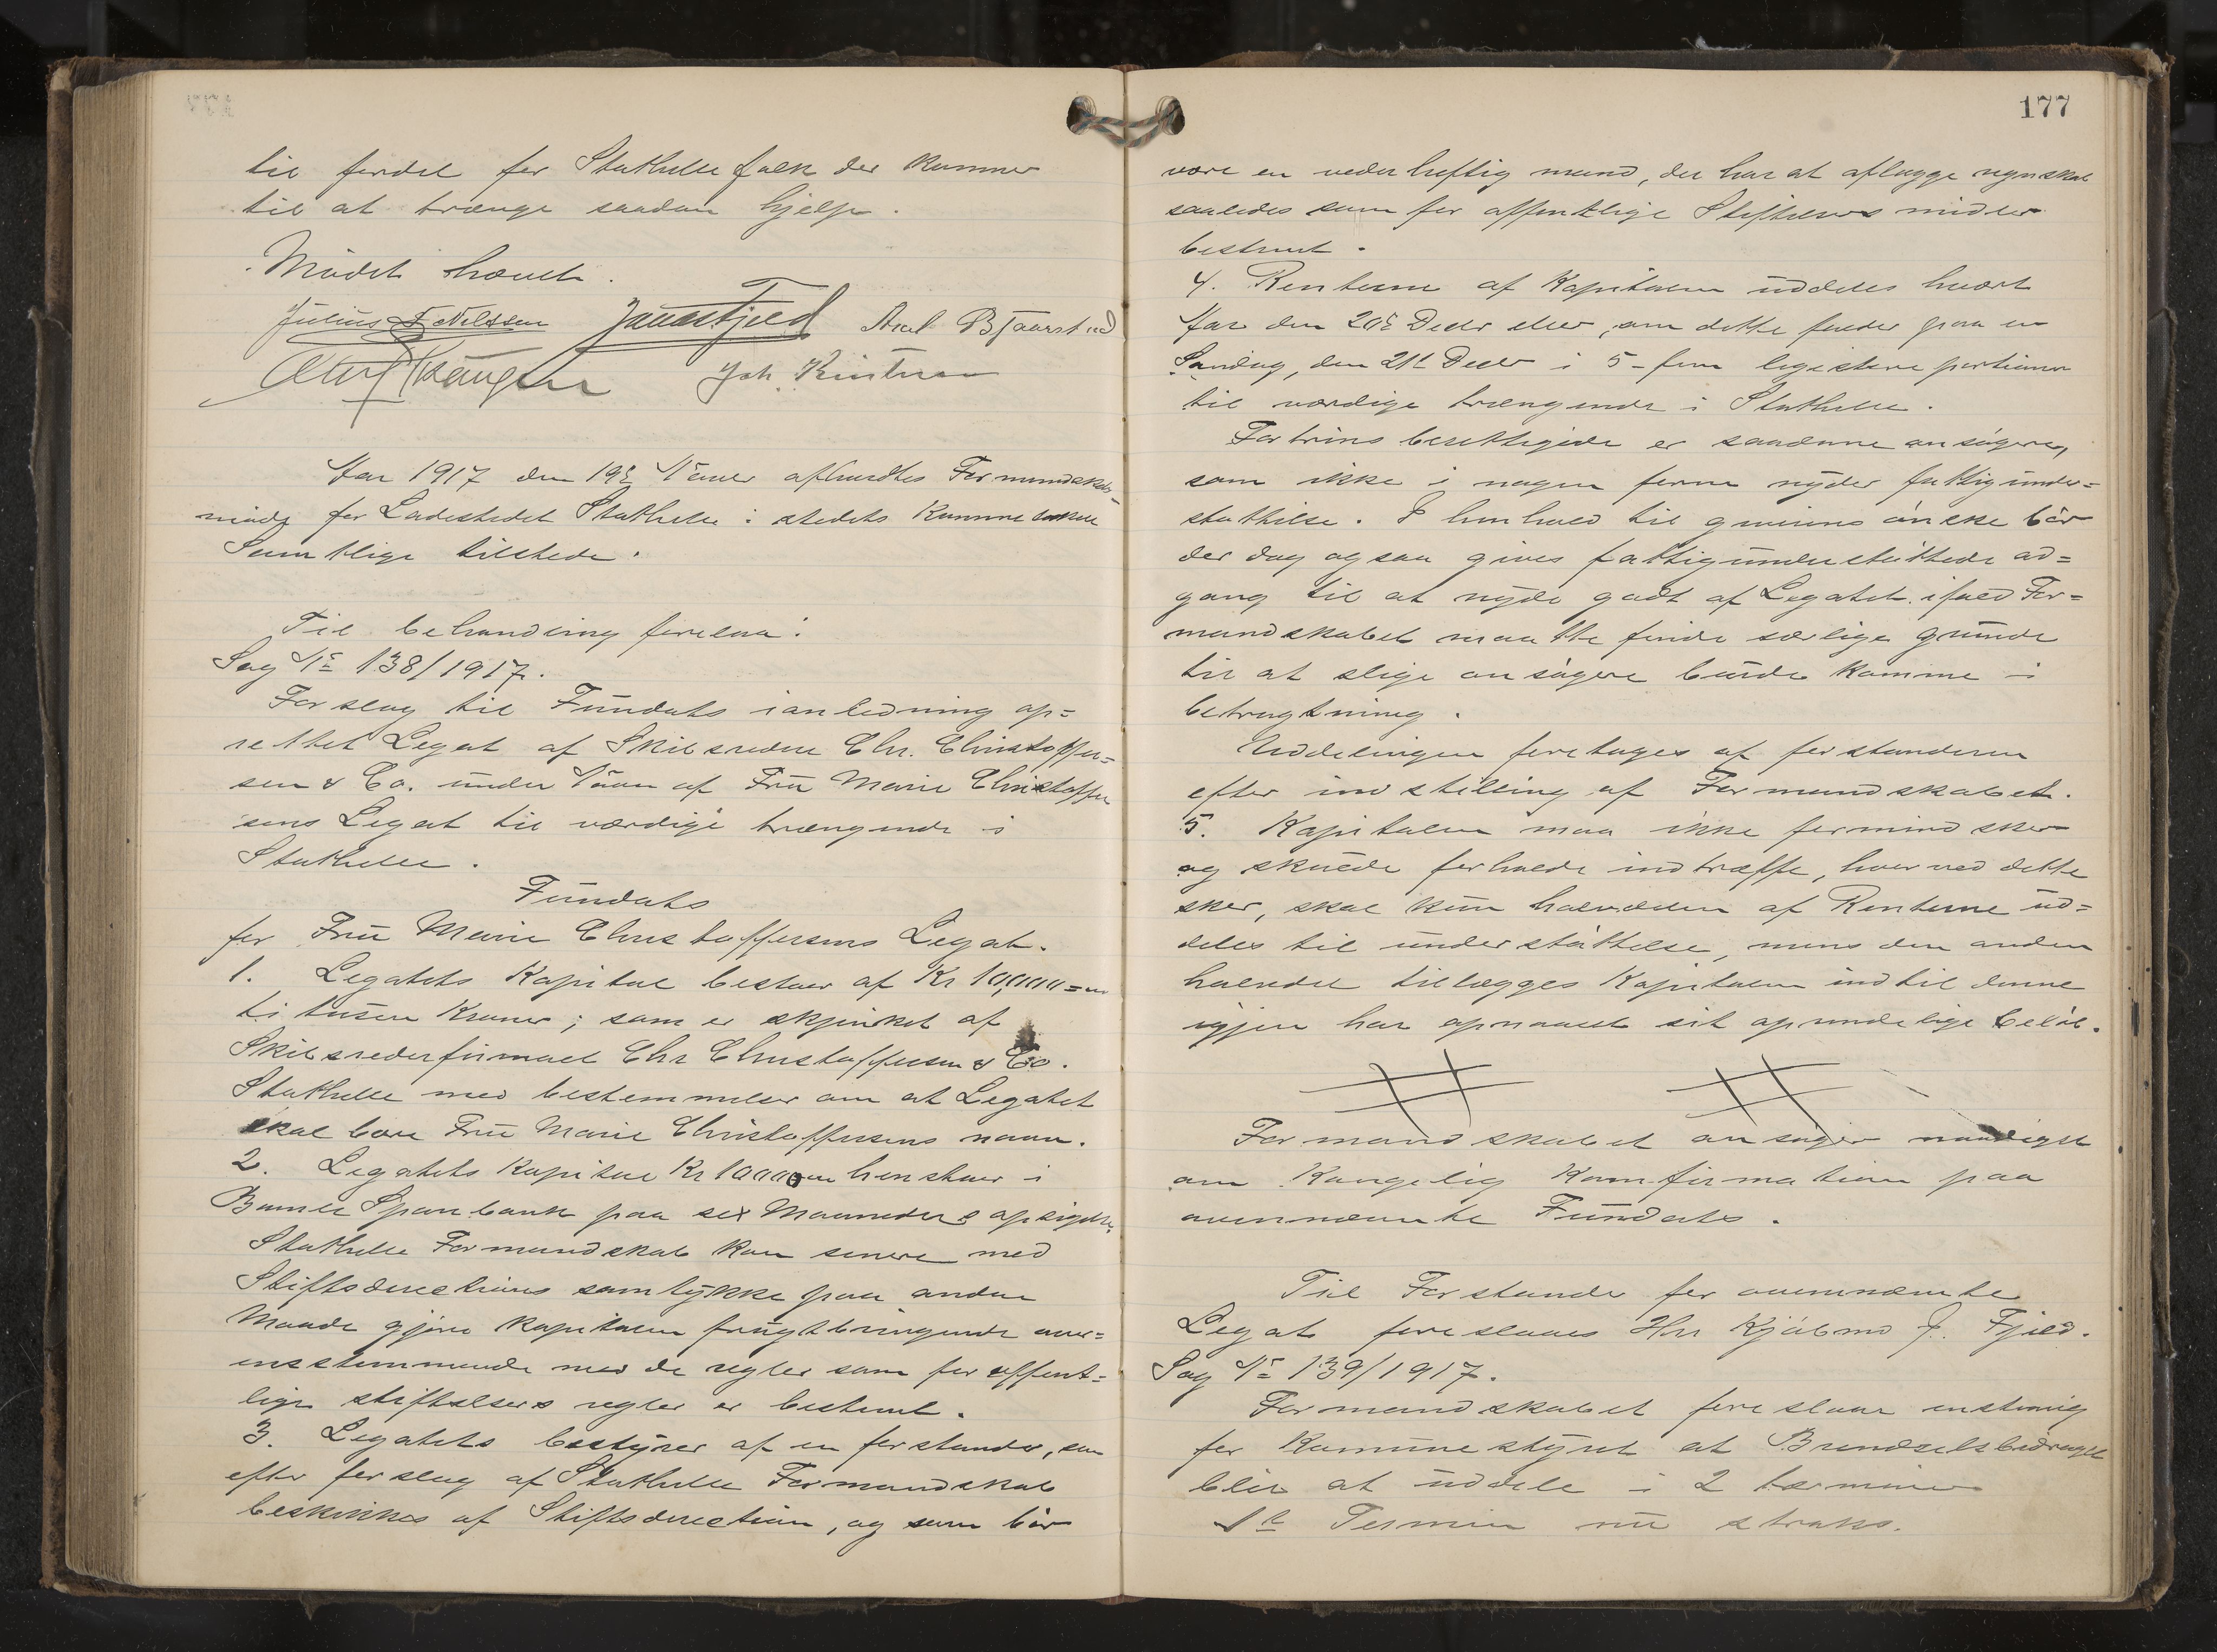 til fordel for Stathelle folk der kommer
til at trænge saadan hjelp.
Mødet hævet.
Julius E Nilssen Jaus Fjeld Axel Bjaarstad
Joh. Kristensen
Aar 1917 den 19de Novbr afholdtes Formandskabs-
møde for Ladestedet Stathelle i stedets Kommunelokale
Samtlige tilstede.
Til behandling forelaa:
Sag No 138/1917.
Forslag til Fundats ianledning op=
rettet Legat af Skibsreder Chr. Christoffer=
sen & Co. under Navn af Fru Marie Christoffer
sens Legat til værdige trængende i
Stathelle.
Fundats
for Fru Marie Christoffersens Legat.
1. Legatets Kapital bestaar af Kr 10,000=
ti tusen Kroner; som er skjenket af
Skibsrederfirmaet Chr Christoffersen & Co.
Stathelle med bestemmelser om at Legatet
skal bære Fru Marie Christoffersens navn.
2. Legatets Kapital Kr 10000 henstaar i
Bamle Sparebank paa sex Maaneders opsigelse.
Stathelle Formandskab kan senere med
Stiftsdirectionens samtykke paa anden
Maade gjøre Kapitalen frugtbringende over=
ensstemmende med de regler som for offent=
lige stiftelsers regler er bestemt.
3. Legatets bestyrer af en forstander, som
efter forslag af Stathelle Formandskab
beskikkes af Stiftsdirection, og som bør
177
være en vederheftig mand, der har at aflægge regnskab
saaledes som for offentlige Stiftelsers midler
bestemt.
4. Renterne af Kapitalen uddeles hvert
Aar den 20de Decbr eller, om dette falder paa en
Søndag, den 21de Decbr i 5 - fem ligestore portioner
til værdige trængende i Stathelle.
Fortrinsberettigede er saadanne ansøgere,
som ikke i nogen form nyder fattigunder=
støttelse. I henhold til giverens ønske bør
der dog ogsaa gives fattigunderstøttede ad=
gang til at nyde godt af Legatet ifald For=
mandskabet maatte finde særlige grunde
til at slige ansøgere burde komme i
betragtning.
Uddelingen foretages af forstanderen
efter indstilling af Formandskabet.
5. Kapitalen maa ikke formindskes
og skulde forholde indtræffe, hvorved dette
sker, skal kun halvdelen af Renterne ud=
deles til understøttelse, mens den anden
halvdel tillægges Kapitalen indtil denne
igjen har opnaaet sit oprindelige beløb.
Formandskabet ansøger naadigst
om Kongelig Konfirmation paa
ovennævnte Fundats.
Til Forstander for ovennævnte
Legat foreslaaes Hrr Kjøbmd J. Fjeld.
Sag No 139/1917.
Formandskabet foreslaar enstemmig
for Kommunestyret at Brændselsbidraget
blir at uddele i 2 terminer
1ste Termin nu straks.